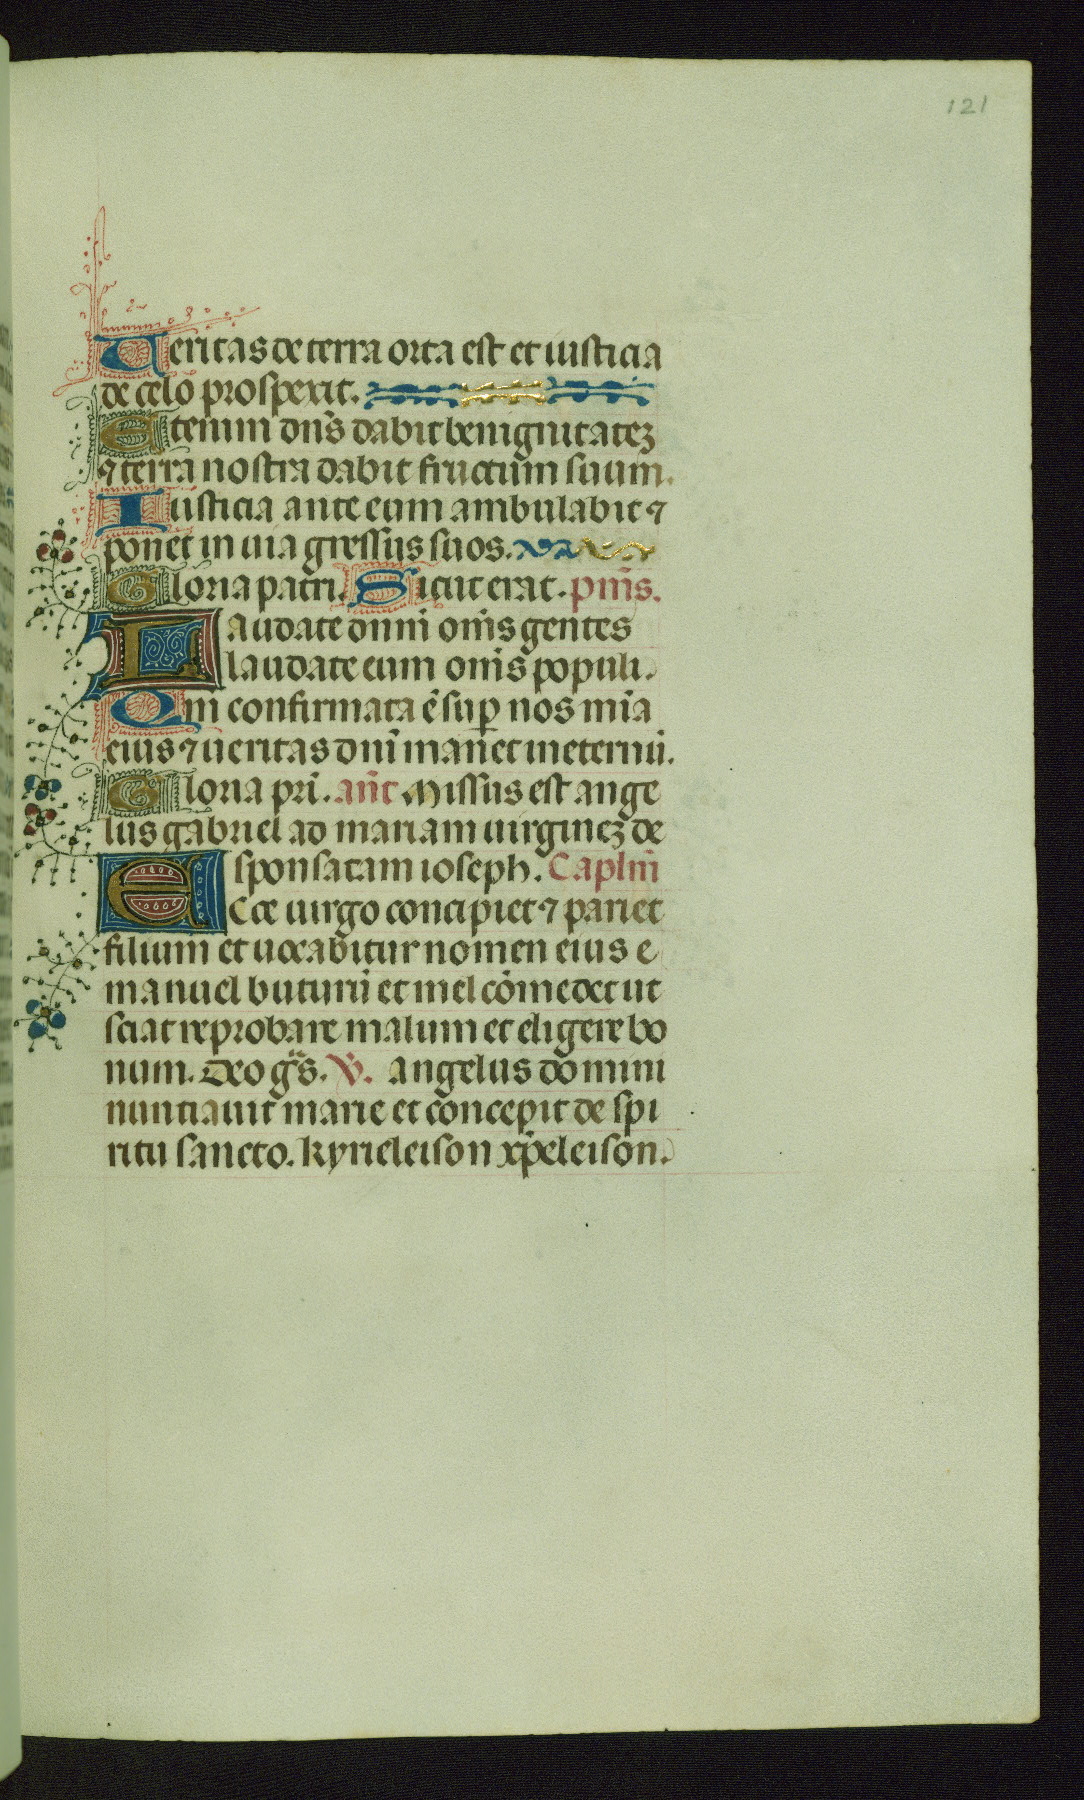 121
Ueritas de terra orta est et iusticia
de celo prospexit.
Etenim dn̄s dabit benignitateꝫ
⁊ terra nostra dabit fructum suum.
Iusticia ante eum ambulabit ⁊
ponet in uia gressus suos.
Gloria patri. Sicut erat. pm̄s.
Laudate dnm̄ om̄s gentes
laudate eum om̄s populi.
Qm̄ confirmata ē suꝑ nos mīa
eius ⁊ ueritas dnī manet in eternū.
Gloria prī. an̄t Missus est ange
lus gabriel ad mariam uirgineꝫ de
sponsatam ioseph. Caplm̄
Ecce uirgo concipiet ⁊ pariet
filium et uocabitur nomen eius e
manuel buturū et mel cōmedet ut
sciat reprobare malum et eligere bo
num. Deo gr̄s. ℣. Angelus domini
nuntiauit marie et concepit de spi
ritu sancto. kyrieleison xp̄eleison.